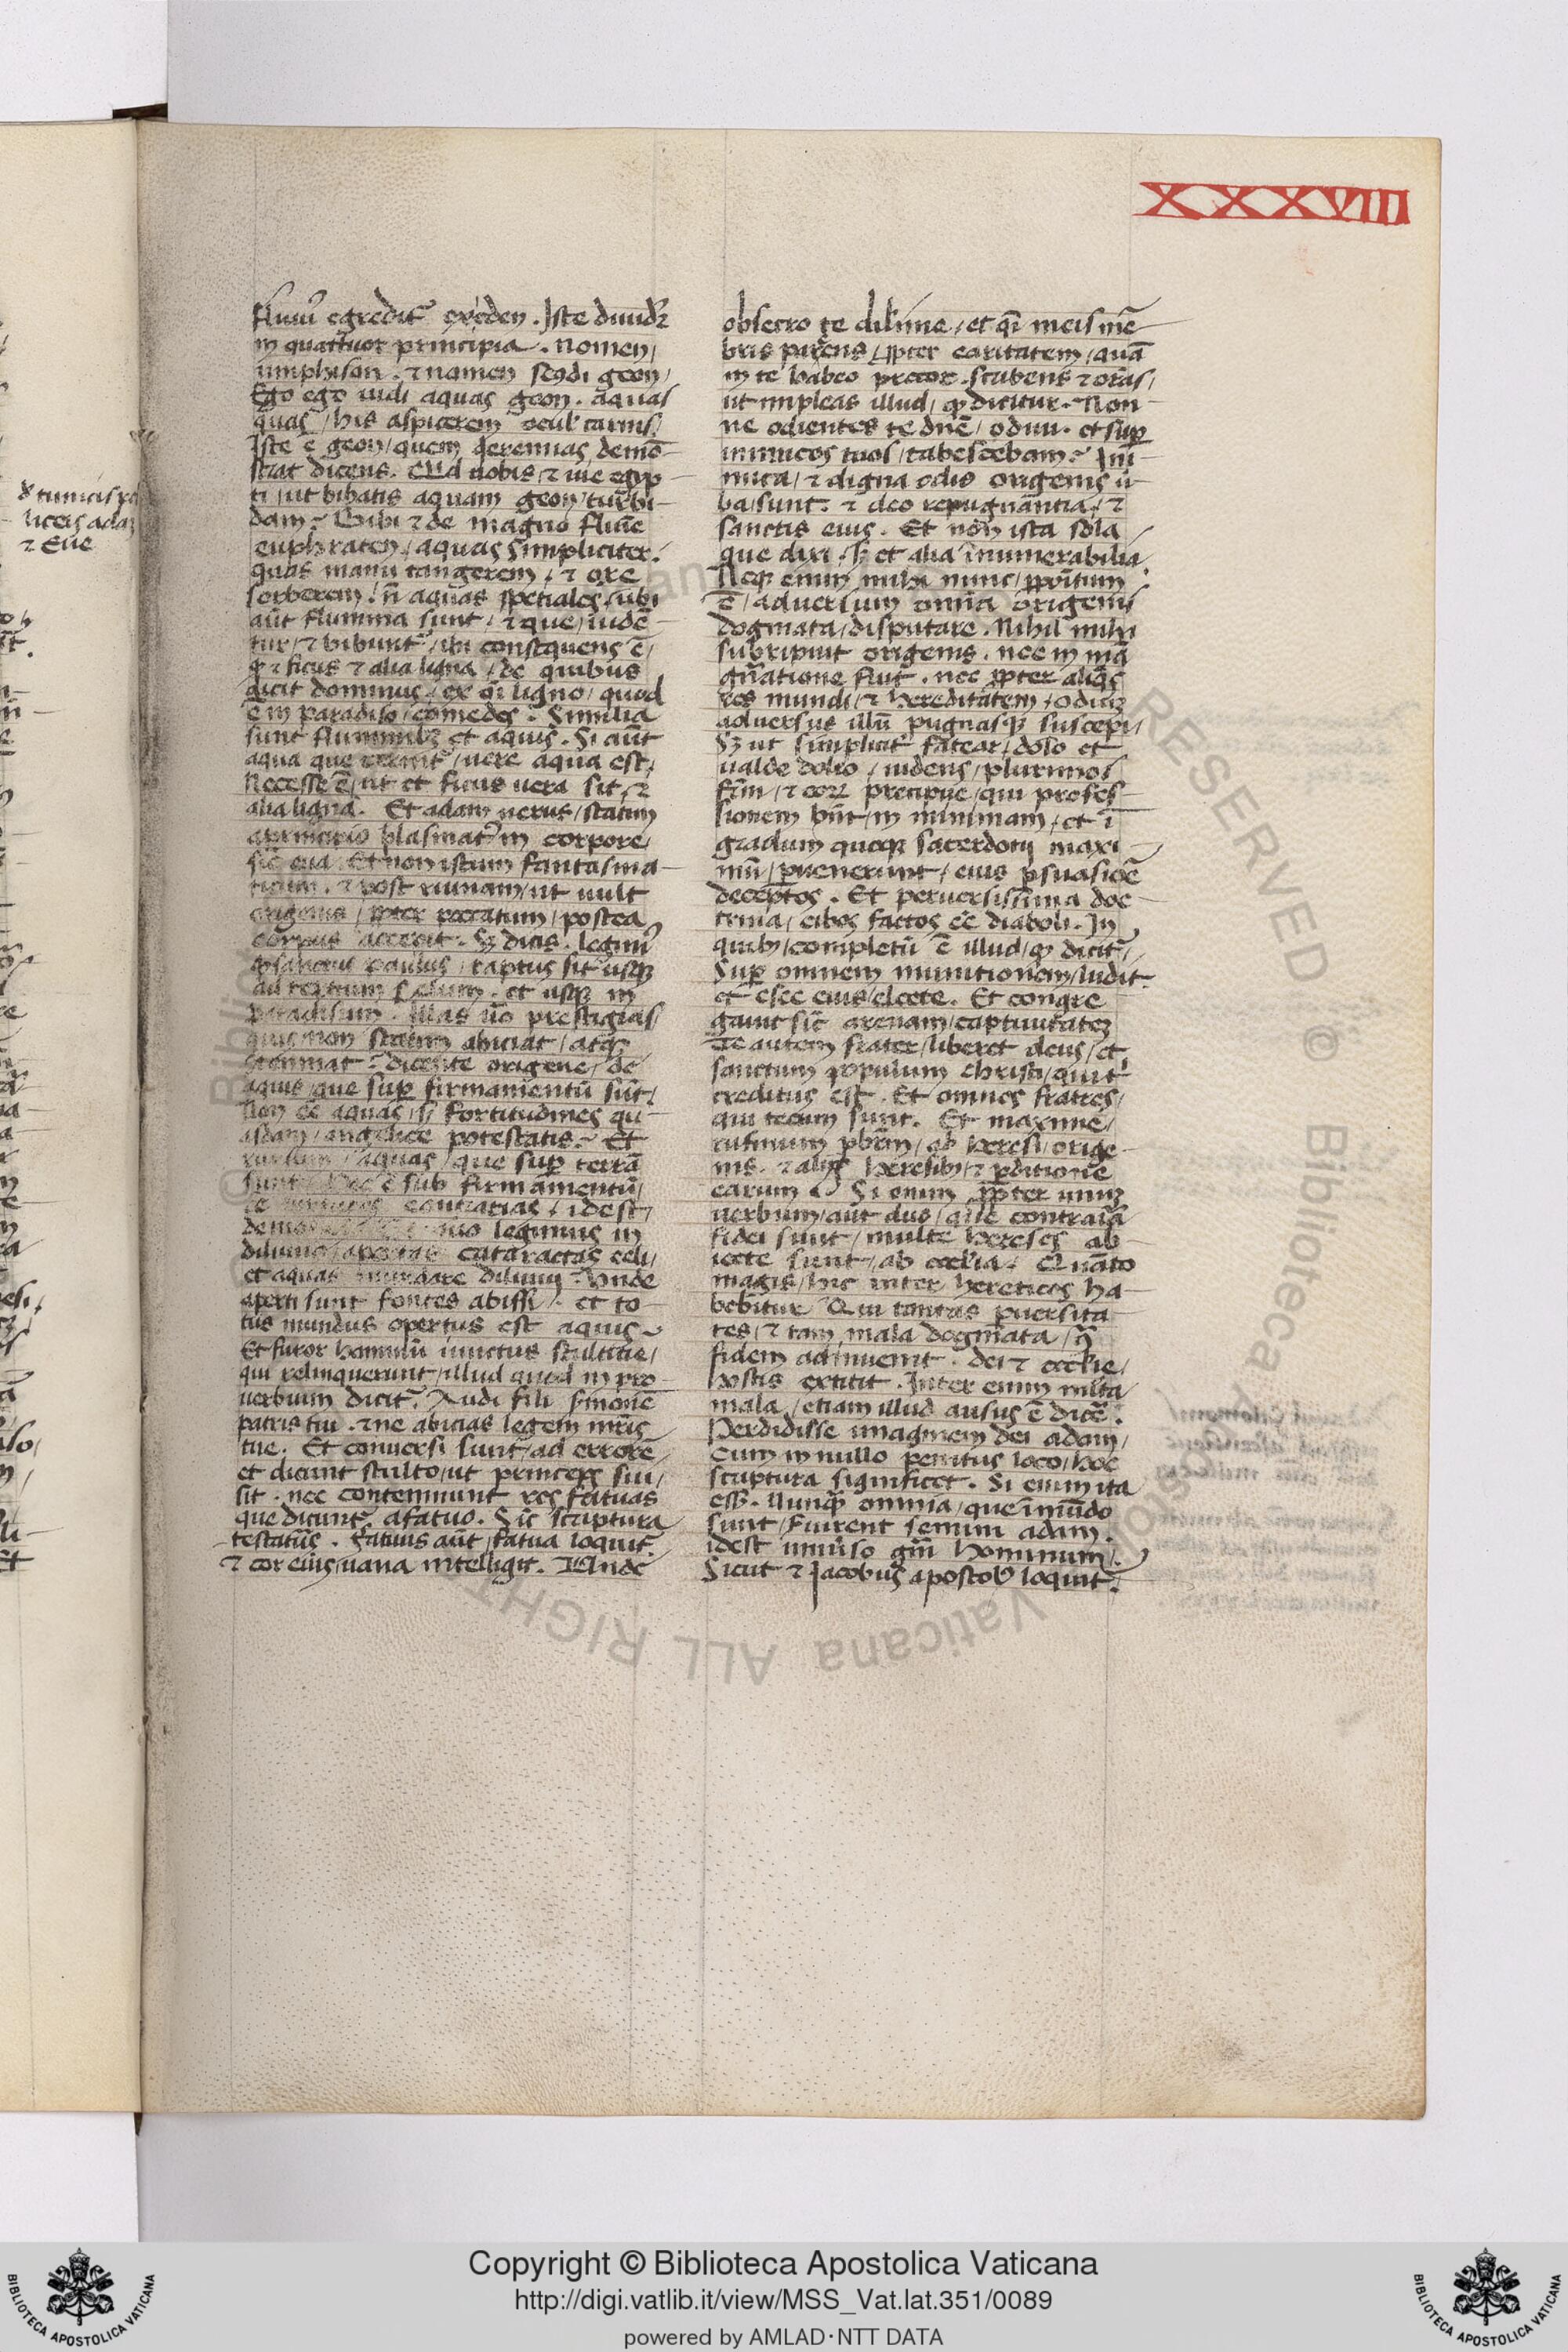 XXXVIII
fluuiꝰ egredit᷑ ex eden. Iste diuidit᷑
in quattuor principia. Nomen/
uni phison. ⁊ nomen scd̄i geon/
Ego ego uidi aquas geon. aquas
quas/ his aspicerem ocul' carnis/
Iste ē geon/ quem ieremias demō-
strat dicens. Quid uobis/ ⁊ uie egyp-
ti/ ut bibatis aquam geon turbi-
dam? Bibi ⁊ de magno flumē
euphraten/ aquas simpliciter.
quas manu tangerem/ ⁊ ore
sorberem. n̄ aquas spetiales. ubi
aūt flumina sunt/ ⁊ que/ uidē-
tur/ ⁊ bibunt᷑/ ibi consequens ē/
ꝙ ⁊ ficus ⁊ alia ligna/ de quibus
dicit dominus/ ex oī ligno/ quod
ē in paradiso/ comedes. Similia
sunt fluminibꝫ et aquis. Si aūt
aqua que cernit᷑/ uere aqua est/
Necesse ē/ ut et ficus uera sit/ ⁊
alia ligna. Et adam uerus/ statim
a primario plasmatꝰ in corpore/
sic eua. Et non istum fantasma-
ticum. ⁊ post ruinam/ ut uult
origenis/ ꝓpter peccatum/ postea
corpus accepit. Sꝫ dicis. legimꝰ
ꝙ sanctus paulus/ raptus sit usqꝫ
ad tertium celum. et usqꝫ in
paradisum. Illas ūo prestigias/
quis non statim abiciat/ atqꝫ
contemnat? dicente origene/ de
aquis/ que suꝑ firmamentū sūt/
Non eē aquas/ sꝫ fortitudines qu-
asdam/ angelice potestatis. Et
rursum/ aquas/ que suꝑ terrā
sunt/ hoc ē sub firmamentū/
eē uirtutes contrarias/ idest/
demones legimus in
diluuio/ apertas cataractas celi/
et aquas inundare diluuij? Vnde
aperti sunt fontes abissi/. et to-
tus mundus opertus est aquis
Et furor hominū iunctus stultitie/
qui relinquerunt/ illud quod in pro-
uerbium dicit᷑. Audi fili s̄monē
patris tui. ⁊ ne abicias legem mr̄is
tue. Et conuersi sunt/ ad errorē
et dicunt stulto/ ut princeps sui/
sit. nec contemnunt res fatuas
que dicunt᷑ a fatuo. Sic scriptura
testatur. Fatuus aūt fatua loquit᷑.
⁊ cor eius/ uana intelligit. Inde
obsecro te dil'ime/ et qͥ meis mē-
bris parcens/ ꝓpter caritatem/ quā
in te habeo precor. scribens ⁊ orās/
ut impleas illud/ ꝙ dicitur. Non-
ne odientes te dn̄e/ odiui. et suꝑ
inimicos tuos/ tabescebam? Ini-
mica/ ⁊ digna odio origenis ū-
ba/ sunt. ⁊ deo repugnantia/ ⁊
sanctis eius. Et non ista sola
que dixi. sꝫ et alia inumerabilia.
Neqꝫ enim mihi nunc/ ꝓpoītum
ē/ aduersum omnia origenis
dogmata/ disputare. Nihil mihi
subripiuit origenis. nec in mā
gn̄atione fuit. nec ꝓpter aliqͣs
res mundi/ ⁊ hereditatem/ odiuꝫ
aduersus illū pugnasqꝫ suscepi/
Sꝫ ut simplicit᷑ fatear/ doleo et
ualde doleo/ uidens/ plurimos
fr̄m/ ⁊ eoꝝ precipue/ qui profes-
sionem hn̄t/ in minimam/ et ī
gradum quoqꝫ sacerdotij maxi-
mū/ ꝑuenerunt/ eius ꝑsuasiōe
deceptos. Et peruersissima doc-
trina/ cibos factos eē diaboli. In
quibꝫ/ completū ē illud/ ꝙ dicit᷑/
Suꝑ omnem munitionem/ ludit.
et esce eius/ electe. Et congre
gauit sic arenam/ captiuitateꝫ
Te autem frater/ liberet deus/ et
sanctum populum christi/ qui t'
creditus est. Et omnes fratres/
qui tecum sunt. Et maxime/
rufinum pbr̄m/ ab heresi/ orige-
nis. ⁊ alijs heresibꝫ/ ⁊ ꝑditione
earum. Si enim ꝓpter unuꝫ
uerbum/ aut duo/ que contraria
fidei sunt/ multe hereses ab-
iecte sunt/ ab eccl'ia. Quāto
magis/ hic inter hereticos ha-
bebitur Qui tantas ꝑuersita-
tes/ ⁊ tam mala dogmata/ cͣ
fidem adinuenit. dei ⁊ eccl'ie/
hostis extitit. Inter enim multa
mala/ etiam illud ausus ē dicē.
Perdidisse imaginem dei adam/
Cum in nullo penitus loco/ hoc
scriptura significet. Si enim ita
esset. Nunqͣꝫ omnia/ que ī mūdo
sunt/ seruirent semini adam.
idest uniūso gn̄i hominum/.
Sicut ⁊ Jacobus apostol' loquit᷑.
tunicas pe
liceis adam
⁊ Eue
Copyright © Biblioteca Apostolica Vaticana
http://digi.vatlib.it/view/MSS_Vat.lat.351/0089
powered by AMLAD·NTT DATA
BIBLIOTECA APOSTOLICA VATICANA
BIBLIOTECA APOSTOLICA VATICANA